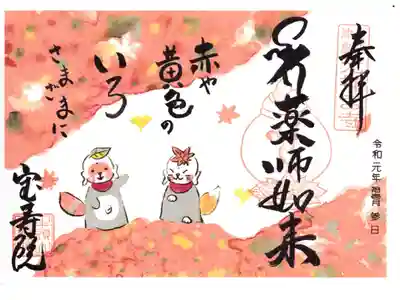 奉拝
令和元年 霜月 参日
薬師如来
赤や
黄色の
いろ
さまざまに
宝寿院